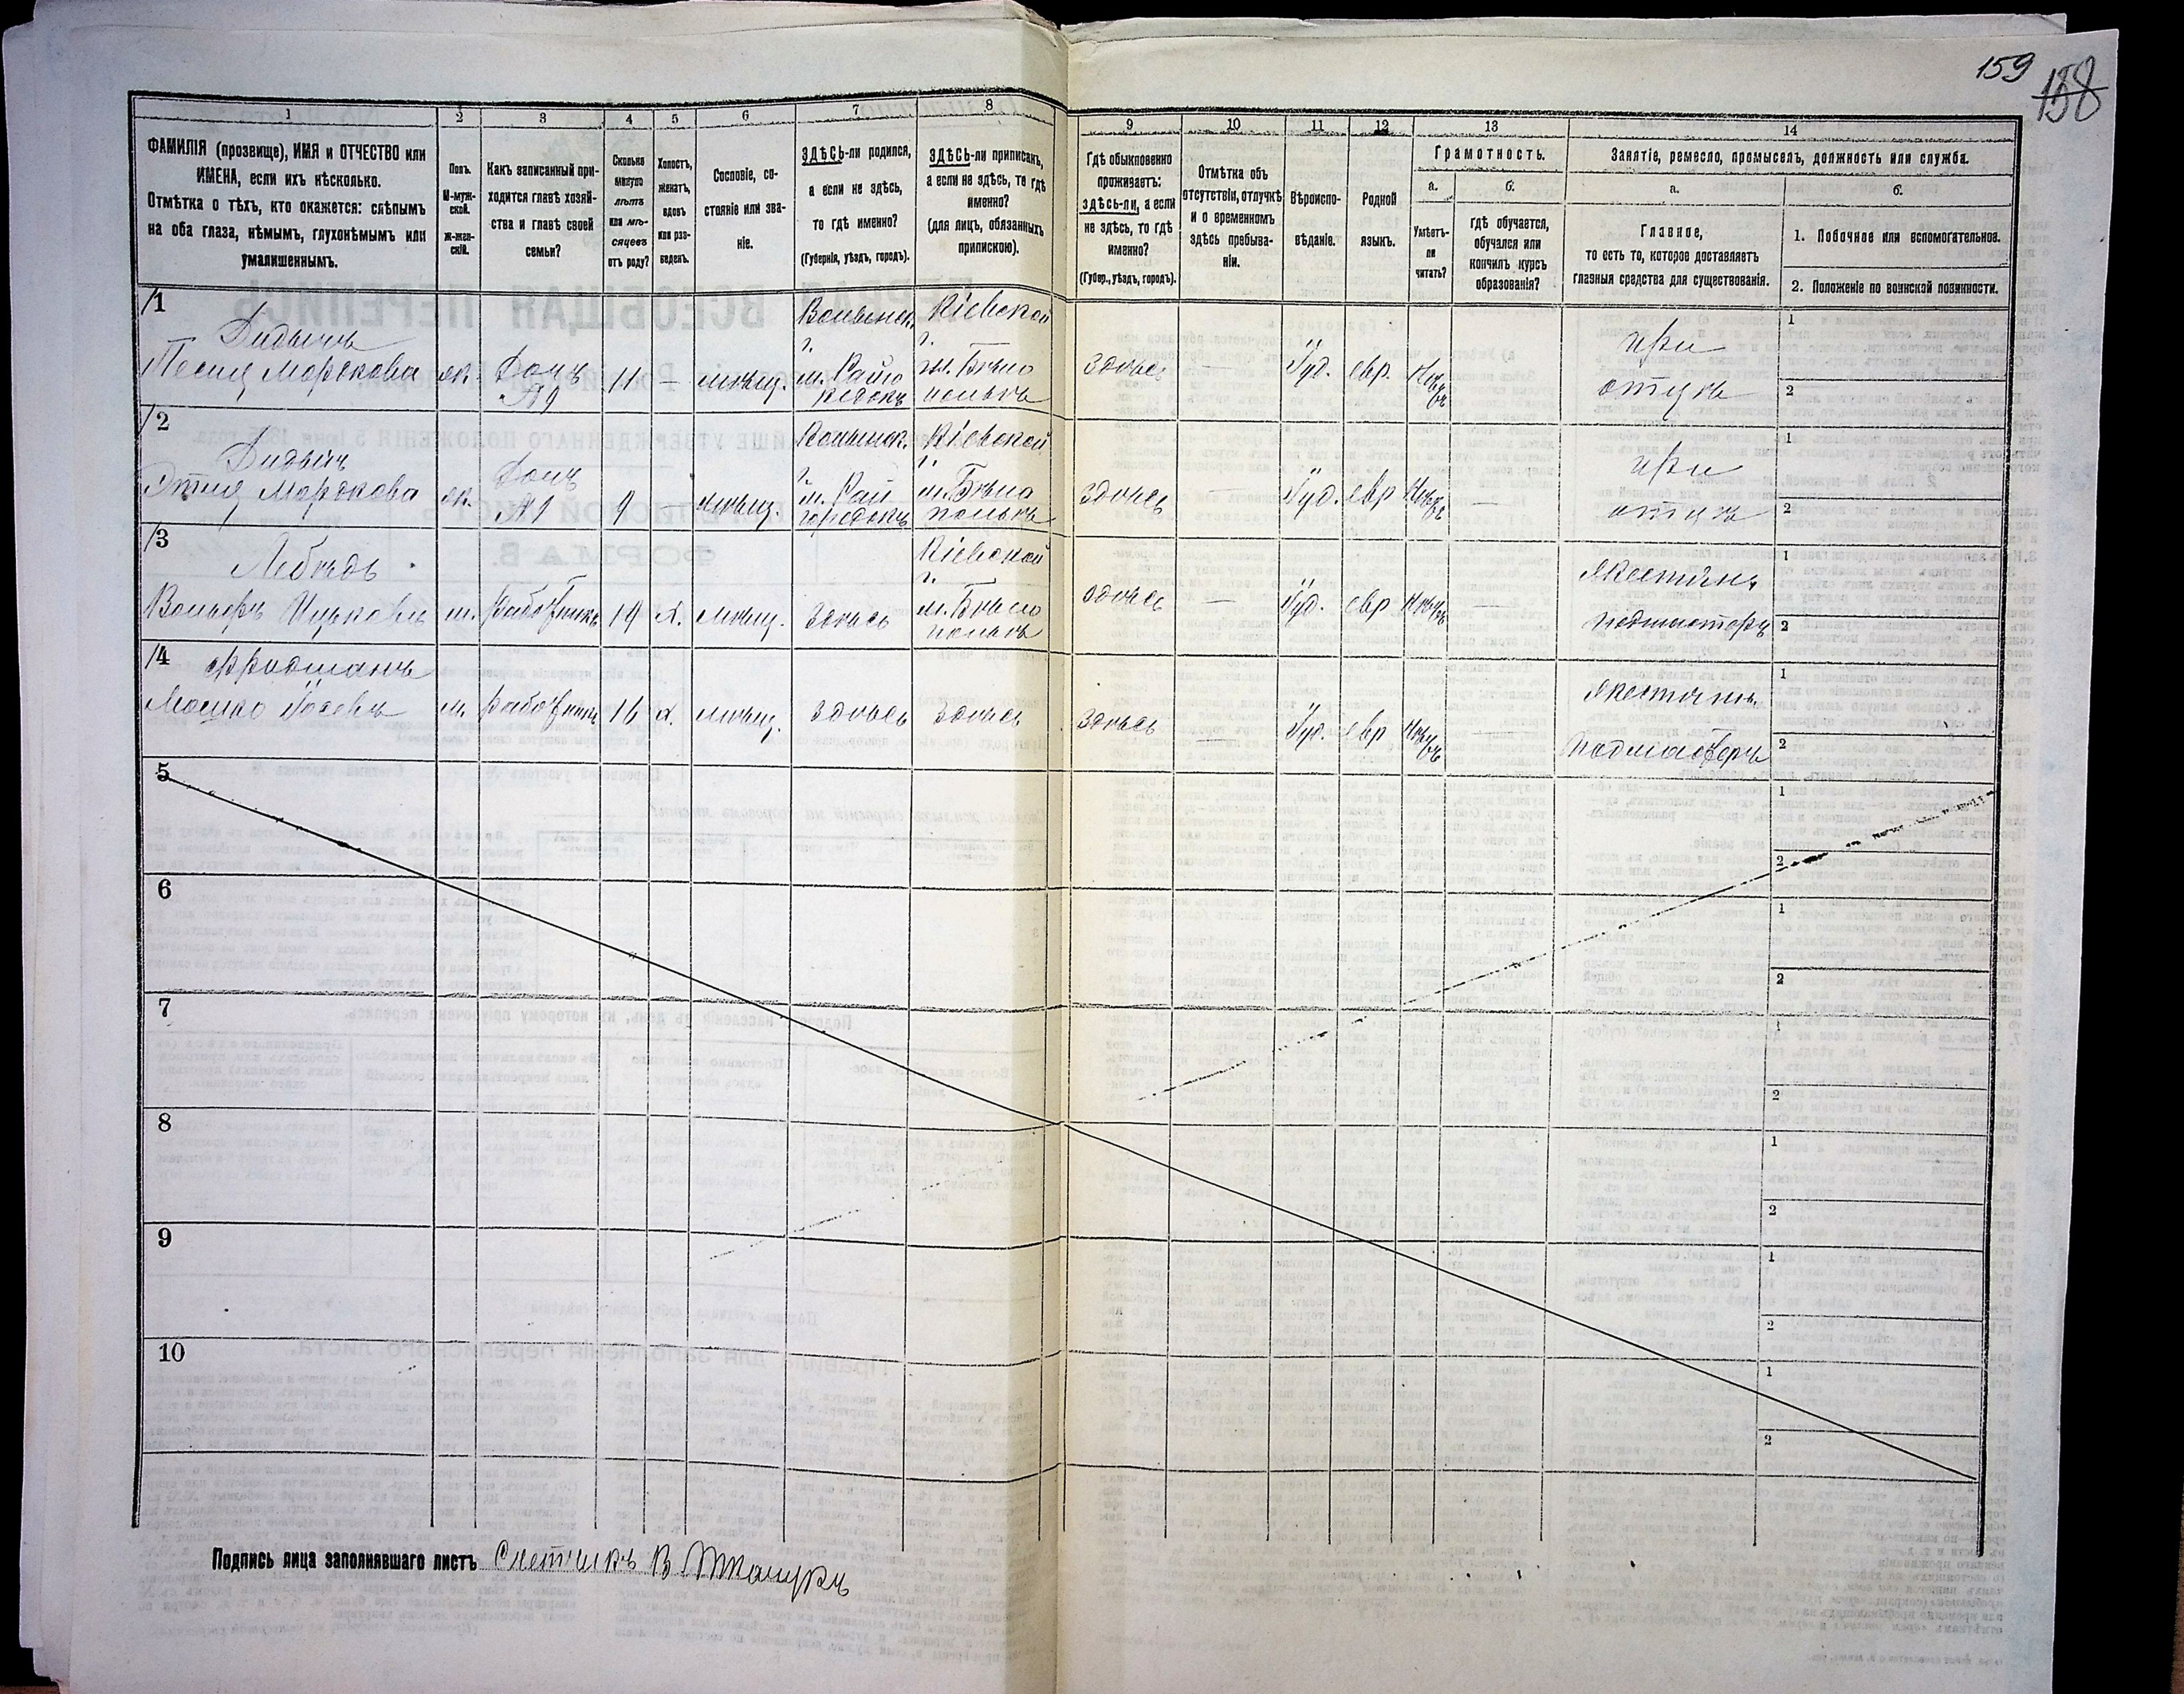 159
158
1
2
3
4
5
6
7
8
9
10
11
12
13
14
ФАМИЛІЯ (прозвище), ИМЯ и ОТЧЕСТВО или
ИМЕНА, если ихъ нѣсколько.
Отмѣтка о тѣхъ, кто окажется: слѣпымъ
на оба глаза, нѣмымъ, глухонѣмымъ или
умалишеннымъ.
Полъ.
М-муж-
ской.
Ж-жен-
скій.
Какъ записанный при-
ходится главѣ хозяй-
ства и главѣ своей
семьи?
Сколько
минуло
лѣтъ
или мѣ-
сяцевъ
отъ роду?
Холостъ,
женатъ,
вдовъ
или раз-
веденъ.
Сословіе, со-
стояніе или зва-
ніе.
ЗДѢСЬ-ли родился,
а если не здѣсь,
то гдѣ именно?
(Губернія, уѣздъ, городъ).
ЗДѢСЬ-ли приписанъ,
а если не здѣсь, то гдѣ
именно?
(для лицъ, обязанныхъ
припискою).
Гдѣ обыкновенно
проживаетъ:
здѣсь-ли, а если
не здѣсь, то гдѣ
именно?
(Губер., уѣздъ, городъ).
Отмѣтка объ
отсутствіи, отлучкѣ
и о временномъ
здѣсь пребыва-
ніи.
Вѣроиспо-
вѣданіе.
Родной
языкъ.
Грамотность.
а.
б.
Умѣетъ-
ли
читать?
гдѣ обучается,
обучался или
кончилъ курсъ
образованія?
Занятіе, ремесло, промыселъ, должность или служба.
а.
б.
Главное,
то есть то, которое доставляетъ
главныя средства для существованія.
1. Побочное или вспомогательное.
2. Положеніе по воинской повинности.
11
Песия Мордкова
ж.
Дочь
11
—
мѣщ.
Волынск.
г.
Кіевской
г.
м. Бѣло
полье
здѣсь
—
Іуд.
евр.
при
отцѣ
1
2
12
Этия Мордкова
ж.
Дочь
9
—
мѣщ.
Волынск.
г.
м. Рай
городкѣ
Кіевской
г.
м. Бѣло
полье
здѣсь
—
Іуд.
евр
—
при
отцѣ
1
2
13
Лебедь
Вольфъ Ицковъ
м.
работникъ
19
х.
мѣщ.
здѣсь
Кіевской
г.
м. Бѣло
полье
здѣсь
—
Іуд.
евр
—
Жестян.
подмастеръ
1
2
14
Фридманъ
Мошко Іосевъ
м.
работникъ
16
х.
мѣщ.
здѣсь
здѣсь
здѣсь
—
Іуд.
евр
—
Жестян.
подмастеръ
1
2
5
1
2
6
1
2
7
1
2
8
1
2
9
1
2
10
1
2
Подпись лица заполнявшаго листъ Счетчикъ В.